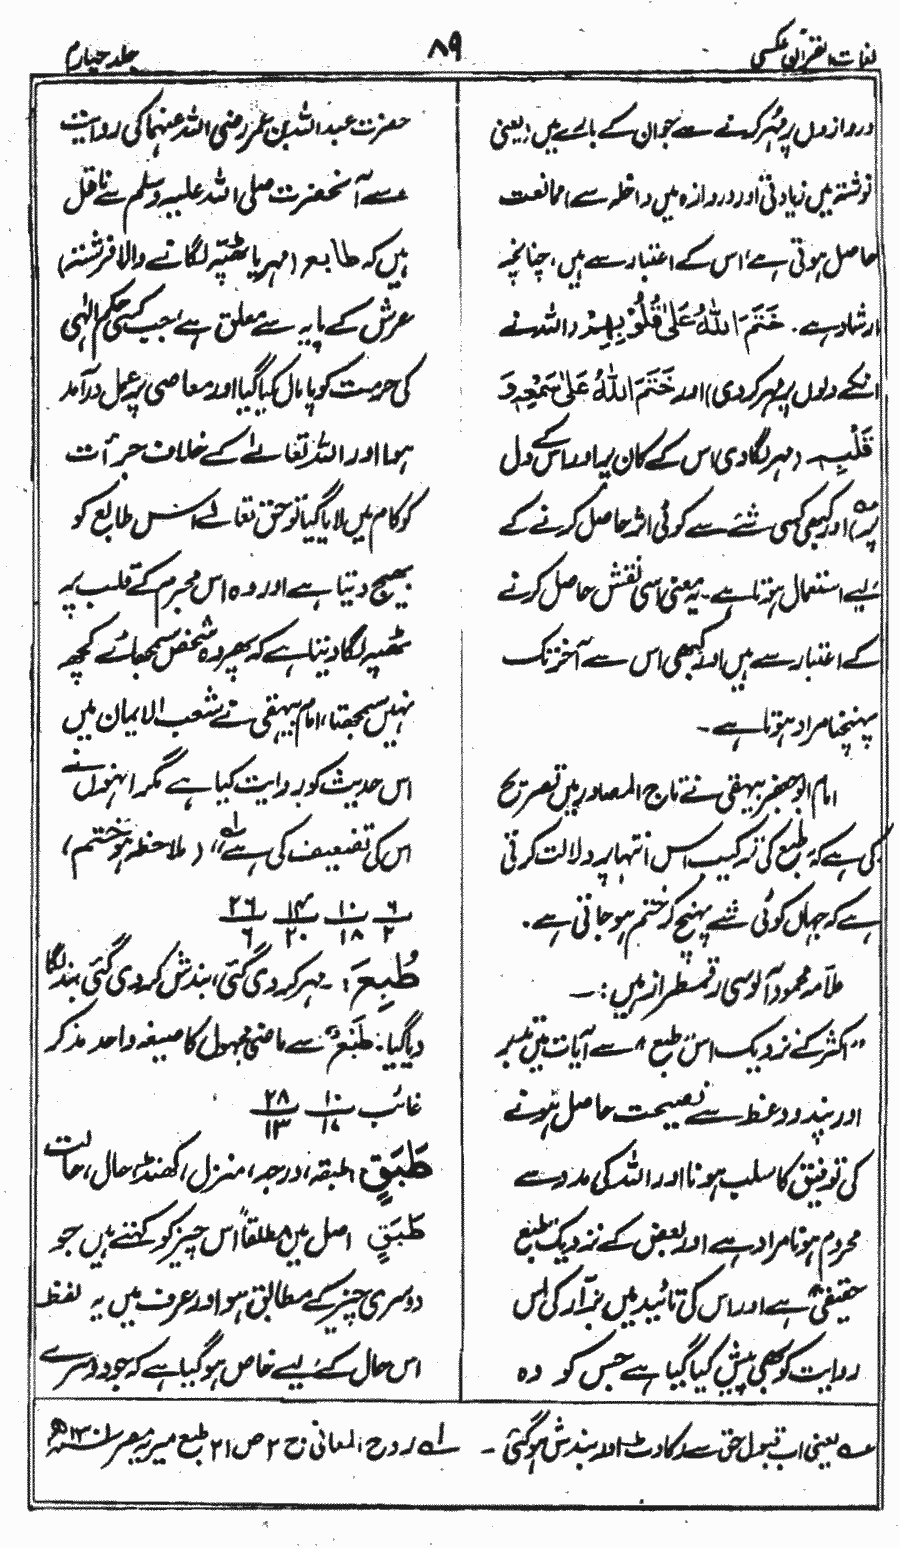 لغات القرآن عکسی
۸۹
جلد چہارم
دروازوں پر مُہر کرنے سے جوان کے بارے میں؛ یعنی
نوشتہ میں زیادتی اور دروازہ میں داخلہ سے ممانعت
حاصل ہوتی ہے، اس کے اعتبار سے ہیں، چنانچہ
ارشاد ہے۔ خَتَمَ اللّٰہُ عَلیٰ قُلُوْبِہِمْ (اللہ نے
انکے دلوں پر مہر کردی) اور خَتَمَ اللّٰہُ عَلیٰ سَمْعِہٖ وَ
قَلْبِہٖ (مہر لگادی اس کے کان پر اور اس کے دل
پر) اور کبھی کسی شئے سے کوئی اثر حاصل کرنے کے
لیے استعمال ہوتا ہے۔ یہ معنی اسی نقش حاصل کرنے
کے اعتبار سے ہیں اور کبھی اس سے آخر تک
پہنچنا مراد ہوتا ہے۔
امام ابو جعفر بیہقی نے تاج المصادر میں تصریح
کی ہے کہ طبع کی ترکیب اس انتہا پر دلالت کرتی
ہے کہ جہاں کوئی شے پہنچ کر ختم ہو جاتی ہے۔
علامہ محمود آلوسی رقمطراز ہیں :۔
" اکثر کے نزدیک اس طبع" سے آیات میں تدبر
اور پند و وعظ سے نصیحت حاصل ہونے
کی توفیق کا سلب ہونا اور اللہ کی مدد سے
محروم ہونا مراد ہے اور بعض کے نزدیک طبع
حقیقی ہے اور اس کی تائید میں بزار کی اس
روایت کو بھی پیش کیا گیا ہے جس کو وہ
حضرت عبداللہ بن عمر رضی اللہ عنہما کی روایت
سے آنحضرت صلی اللہ علیہ وسلم سے ناقل
ہیں کہ طابع (مہر یا ٹھپّہ لگانے والا فرشتہ)
عرش کے پایہ سے معلق ہے، جب کسی حکم الٰہی
کی حرمت کو پامال کیا گیا اور معاصی پر عمل درآمد
ہوا اور اللہ تعالٰے کے خلاف جرأت
کو کام میں لایا گیا تو حق تعالٰے اس طابع کو
بھیج دیتا ہے اور وہ اس مجرم کے قلب پہ
ٹھپہ لگا دیتا ہے کہ پھر وہ شخص سمجھائے کچھ
نہیں سمجھتا، امام بیہقی نے شعب الایمان میں
اس حدیث کو روایت کیا ہے مگر انہوں نے
اس کی تضعیف کی ہے" (ملاحظہ ہو ختم)
۶/۲ ۱۰/۱۸ ۱۴/۲۰ ۲۶/۶
طُبِعَ :۔ مہر کردی گئی، بندش کردی گئی، بند لگا
دیا گیا: طَبْعٌ سے ماضی مجہول کا صیغہ واحد مذکر
غائب ۱۰/۱۷ ۲۸/۱۳
طَبَقٍ طبقہ، درجہ، منزل، کھنڈ، حال، حالت
طَبَقٍ اصل میں مطلقاً اس چیز کو کہتے ہیں جو
دوسری چیز کے مطابق ہو اور عرف میں یہ لفظ
اس حال کے لیے خاص ہو گیا ہے کہ جو دوسرے
عہ یعنی اب قبول حق سے رکاوٹ اور بندش ہو گئی ۔
لہ روح المعانی ج ۲ ص ۲۱ طبع میریہ مصر